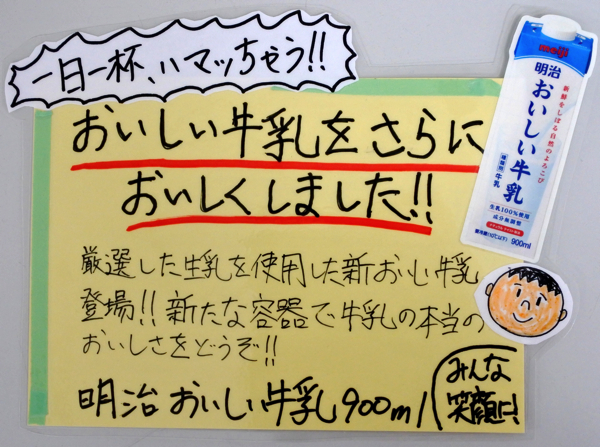 一日一杯、ハマッちゃう!!
おいしい牛乳をさらに
おいしくしました!!
厳選した生乳を使用した新おいしい牛乳
登場!! 新たな容器で牛乳の本当の
おいしさをどうぞ!!
明治 おいしい牛乳 900ml
みんな
笑顔に!
meiji
明治
おいしい牛乳
新鮮をしぼる自然のよろこび
種類別 牛乳
生乳100%使用
成分無調整
要冷蔵(10℃以下) 900ml